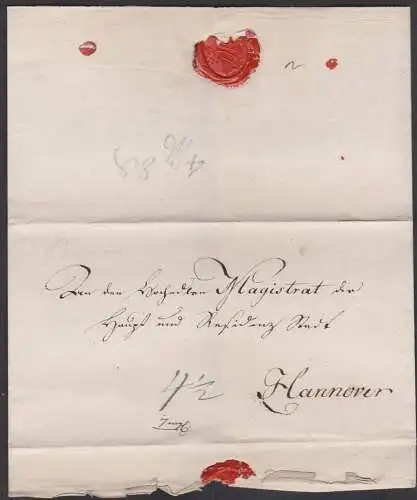 An den Hochedlen Magistrat der
Haupt und Residenz Stadt
4½
Hannover